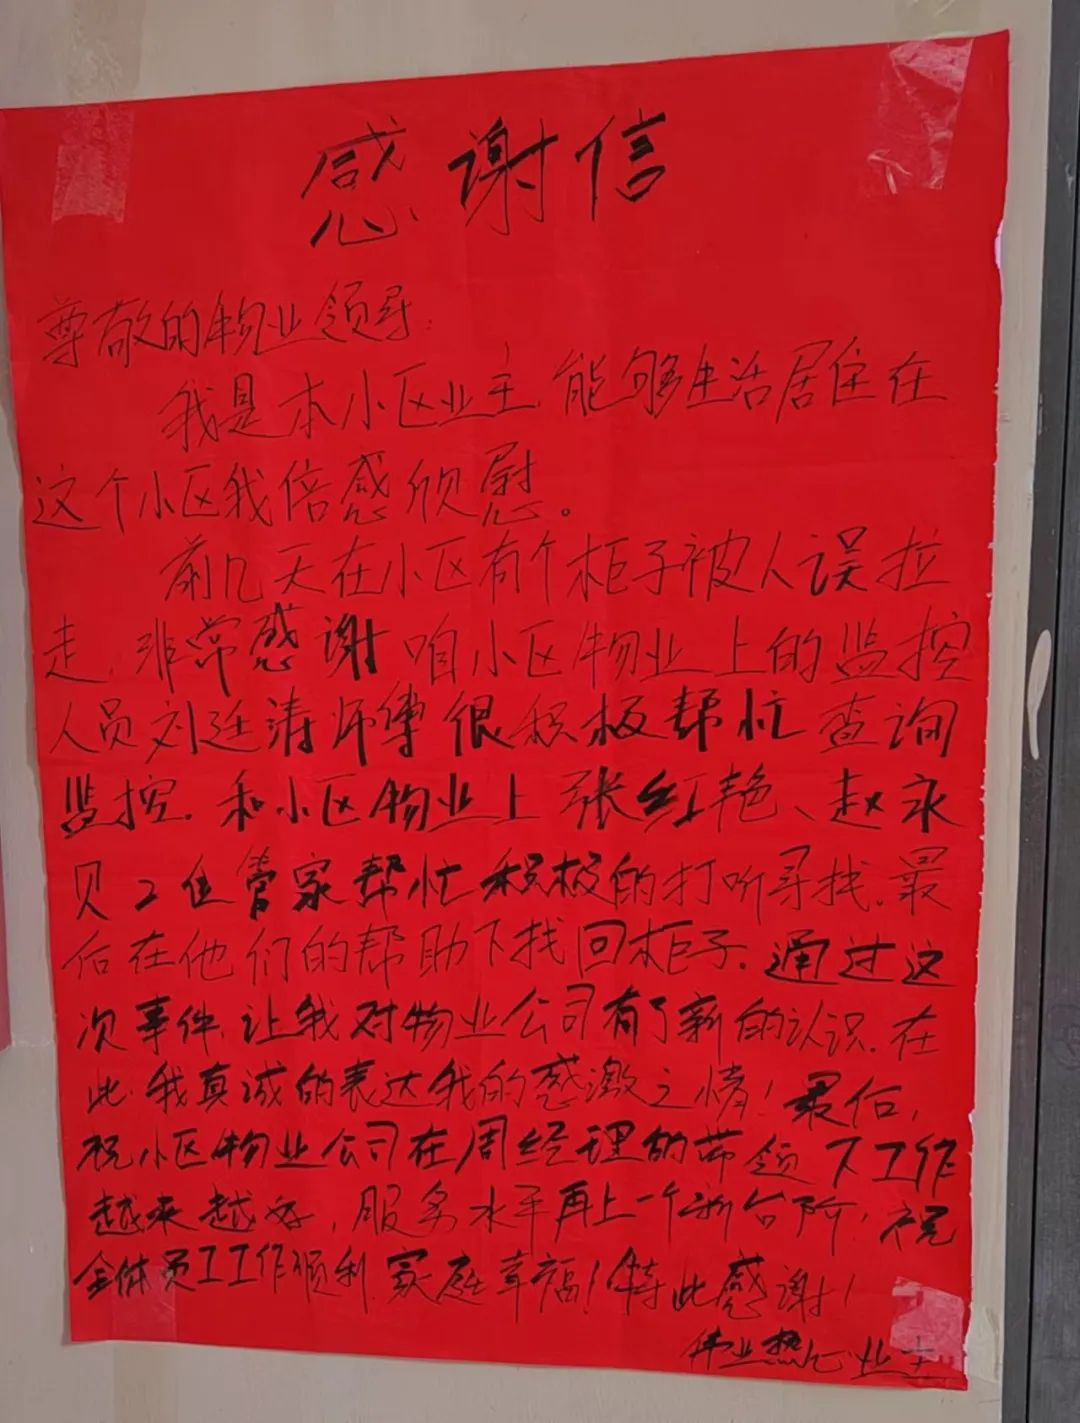 感谢信
尊敬的物业领导:
我是本小区业主,能够生活居住在
这个小区我倍感欣慰。
前几天在小区有个柜子被人误拉
走,非常感谢咱小区物业上的监控
人员刘廷涛师傅很积极帮忙查询
监控.和小区物业上张红艳、赵永
贝2位管家帮忙积极的打听寻找.最
后在他们的帮助下找回柜子.通过这
次事件,让我对物业公司有了新的认识.在
此.我真诚的表达我的感激之情!最后,
祝小区物业公司在周经理的带领下工作
越来越好,服务水平再上一个新台阶,祝
全体员工工作顺利,家庭幸福!特此感谢!
伟业热心业主